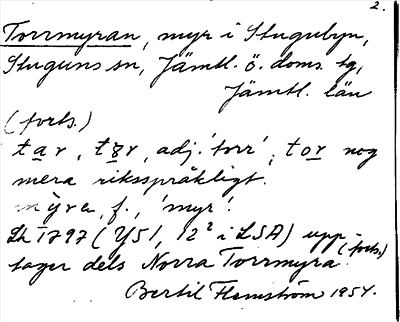 2.
Torrmyran, myr i Stugubyn,
Stuguns sn, Jämtl. ö. doms. tg,
Jämtl. län
(forts.)
tar, tør, adj. 'torr', tor nog
mera riksspråkligt.
mỳra, f., 'myr'.
Lh 1797 (Y51, 12² i LSA) upp-
tager dels Norra Torrmyra (forts.)
Bertil Flemström 1954.